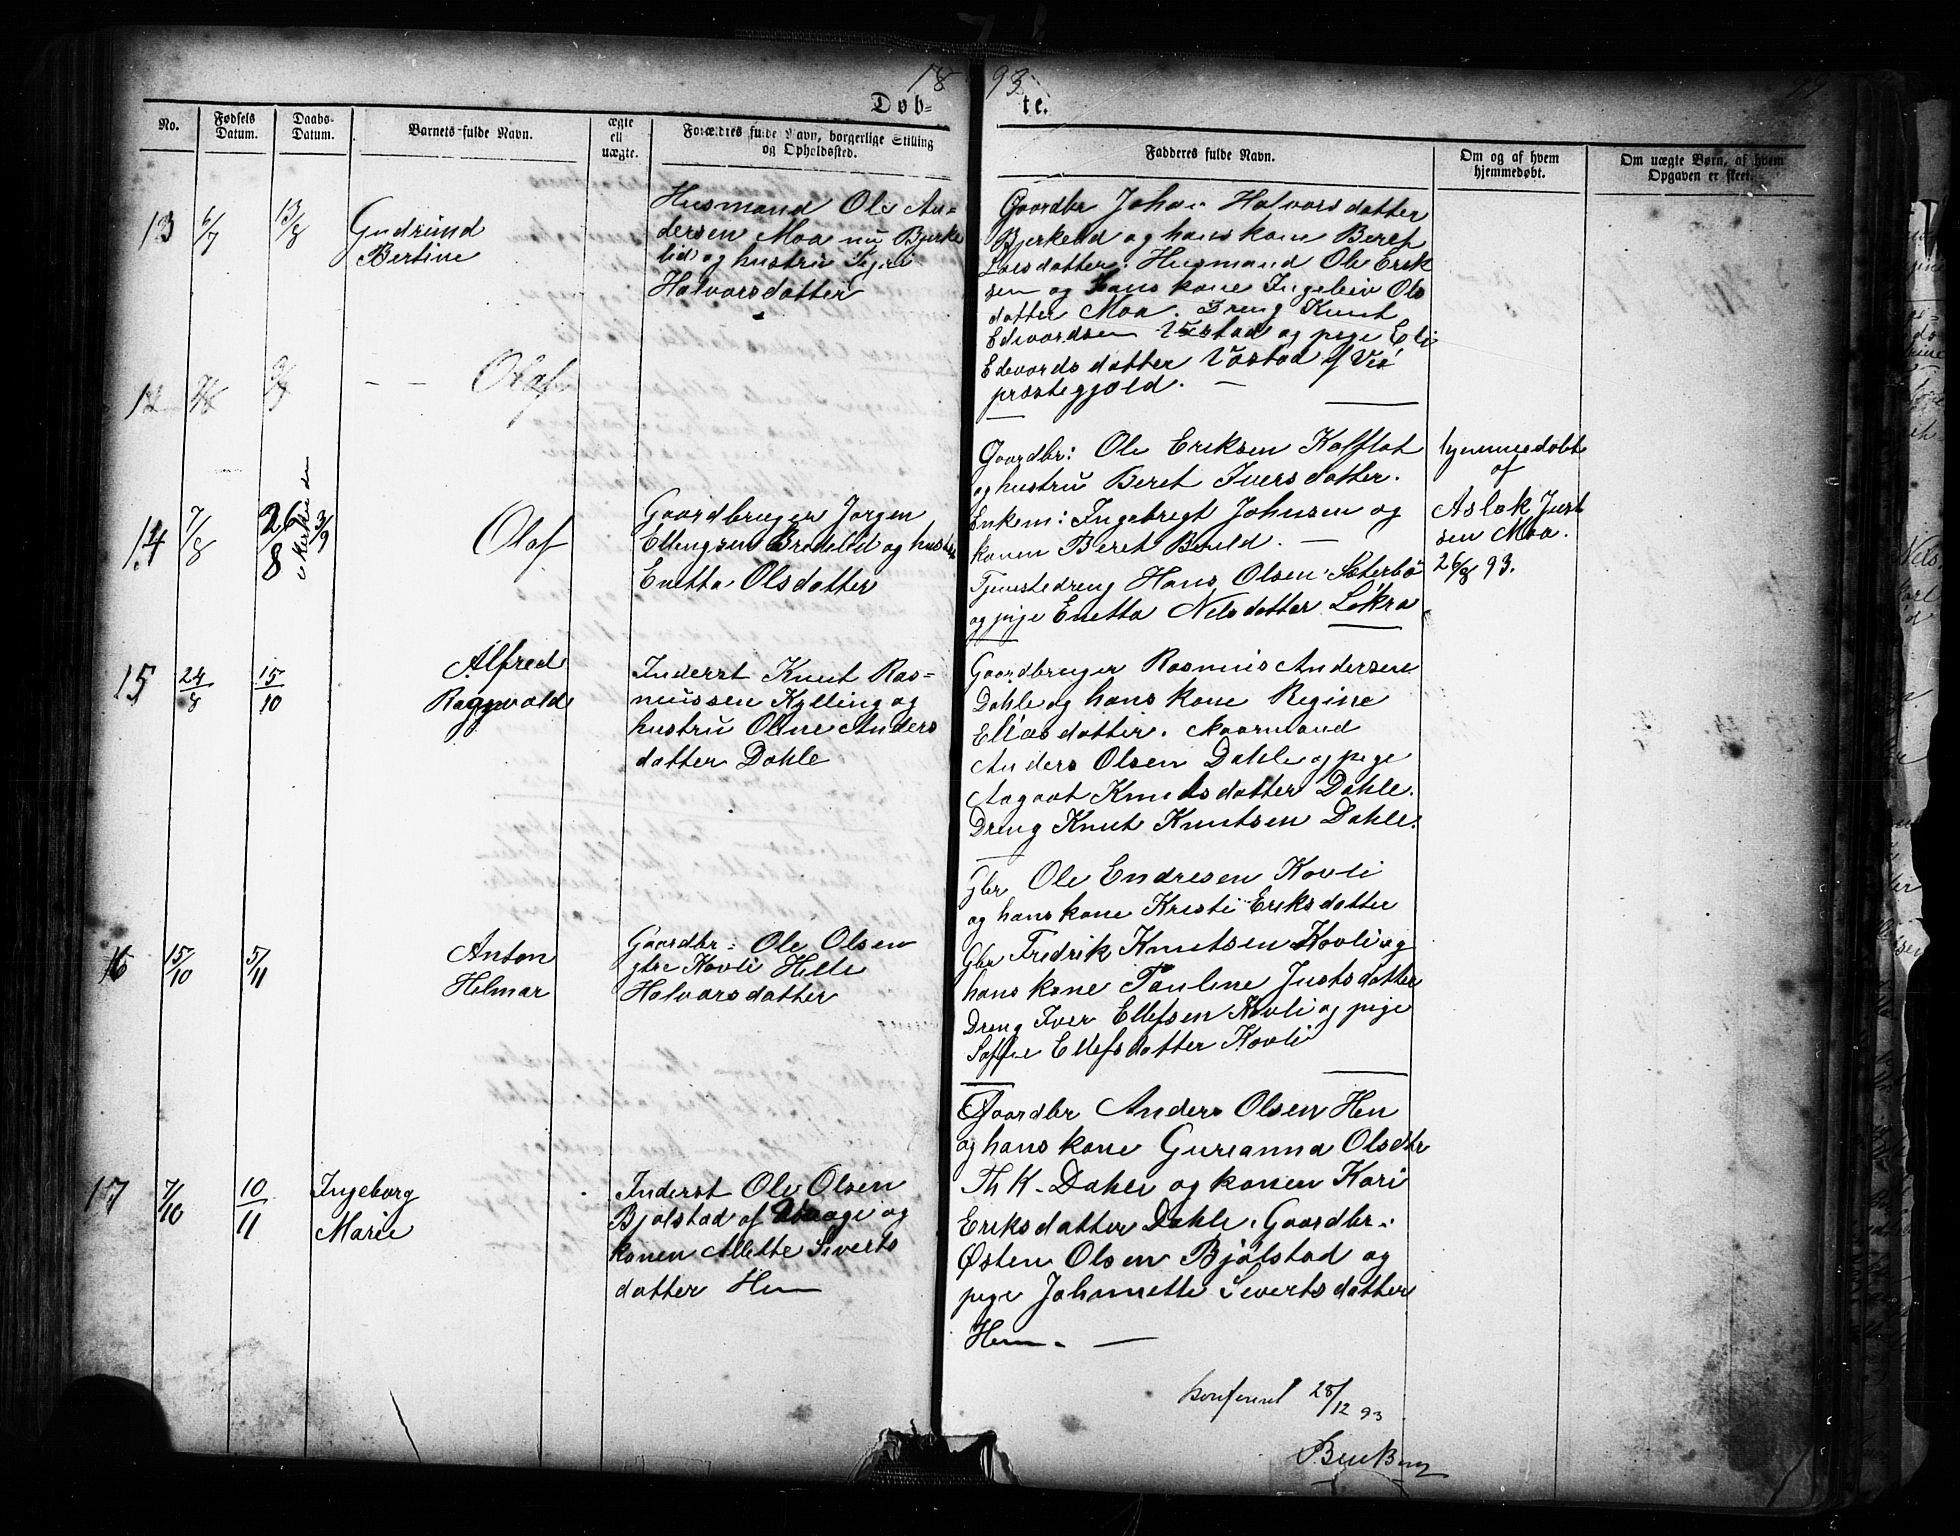 18 93
Døb- te.
No.
Fødsels Datum.
Daabs-Datum.
Barnets fulde Navn.
ægte ell uægte.
Forældres fulde Navn, borgerlige Stilling og Opholdssted.
Fadderes fulde Navn.
Om og af hvem hjemmedøbt.
Om uægte Børn, af hvem Opgaven er skeet.
13 6/7 13/8
Gudrund
Bertine
Husmand Ole An-
dersen Moa nu Bjerke
lid og hustru Sigri
Halvorsdatter
Gaardbr Johan Halvorsdatter
Bjerkelid og hans kone Beret
Larsdatter. Husmand Ole Erik
sen og hans kone Ingeleiv Ols
datter Moa. Dreng Knut
Edvardsen Vostad og pige Eli
Edvardsdatter Vostad
præstegjæld. —
— — Olaf
14 7/8 26/8 i kirken den 3/9
Olaf
Gaardbruger Jørgen
Ellingsen Bredeli og hustru
Enetta Olsdatter
Gaardbr: Ole Eriksen Kalflot
og hustru Beret Iversdatter.
Enkem: Ingebregt Johnsen og
konen Beret Bould. —
Tjenestedreng Hans Olsen Sæterbø
og pige Enetta Nelsdatter Løkra
hjemmedøbt
af
Aslak Just
sen Moa.
26/8 93.
15 24/8 15/10
Alfred
Ragnvald
Inderst Knut Ras-
mussen Kylling og
hustru Oline Anders
datter Dahle
Gaardbruger Rasmus Andersen
Dahle og hans kone Regine
Eliasdatter.
Anders Olsen Dahle og pige
Aagaat Knutsdatter Dahle.
Dreng Knut Knutsen Dahle.
16 15/10 5/11
Anton
Helmar
Gaardbr: Ole Olsen
Kovli Helle
Halvorsdatter
gbr Ole Endresen Kovli
og hans kone Kristi Eriksdatter
Gbr Fredrik Knutsen Kovli og
hans kone Pauline Justsdatter
Dreng Iver Ellefsen Kovli og pige
Soffie Ellefsdatter Kovli
17 7/10 10/11
Ingeborg
Marie
Inderst Ole Olsen
Bjølstad af Vaage og
konen Allette Siverts
datter Hen
Gaardbr Anders Olsen Hen
og hans kone Gurianna Olsdtr
Th K. Dahle og konen Kari
Eriksdatter Dahle. Gaardbr.
Østen Olsen Bjølstad og
pige Johanette Sivertsdatter
Hen. —
konfereret 28/12 93